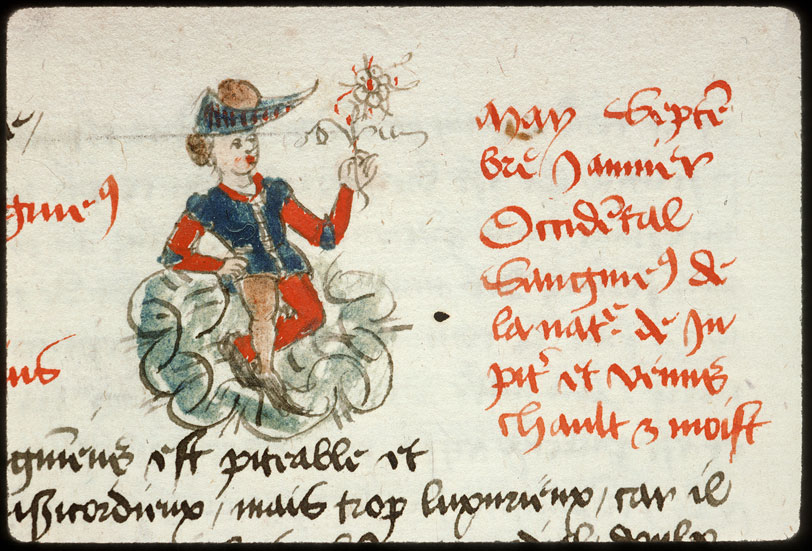 May Septẽ
bre Januier
Occidẽtal
Sanguineꝰ de
la natͬe de Ju
pitͬ et venus
chault & moist
guineꝰ
us
guineus est piteable et
isericordieux / mais trop luxurieux / car il